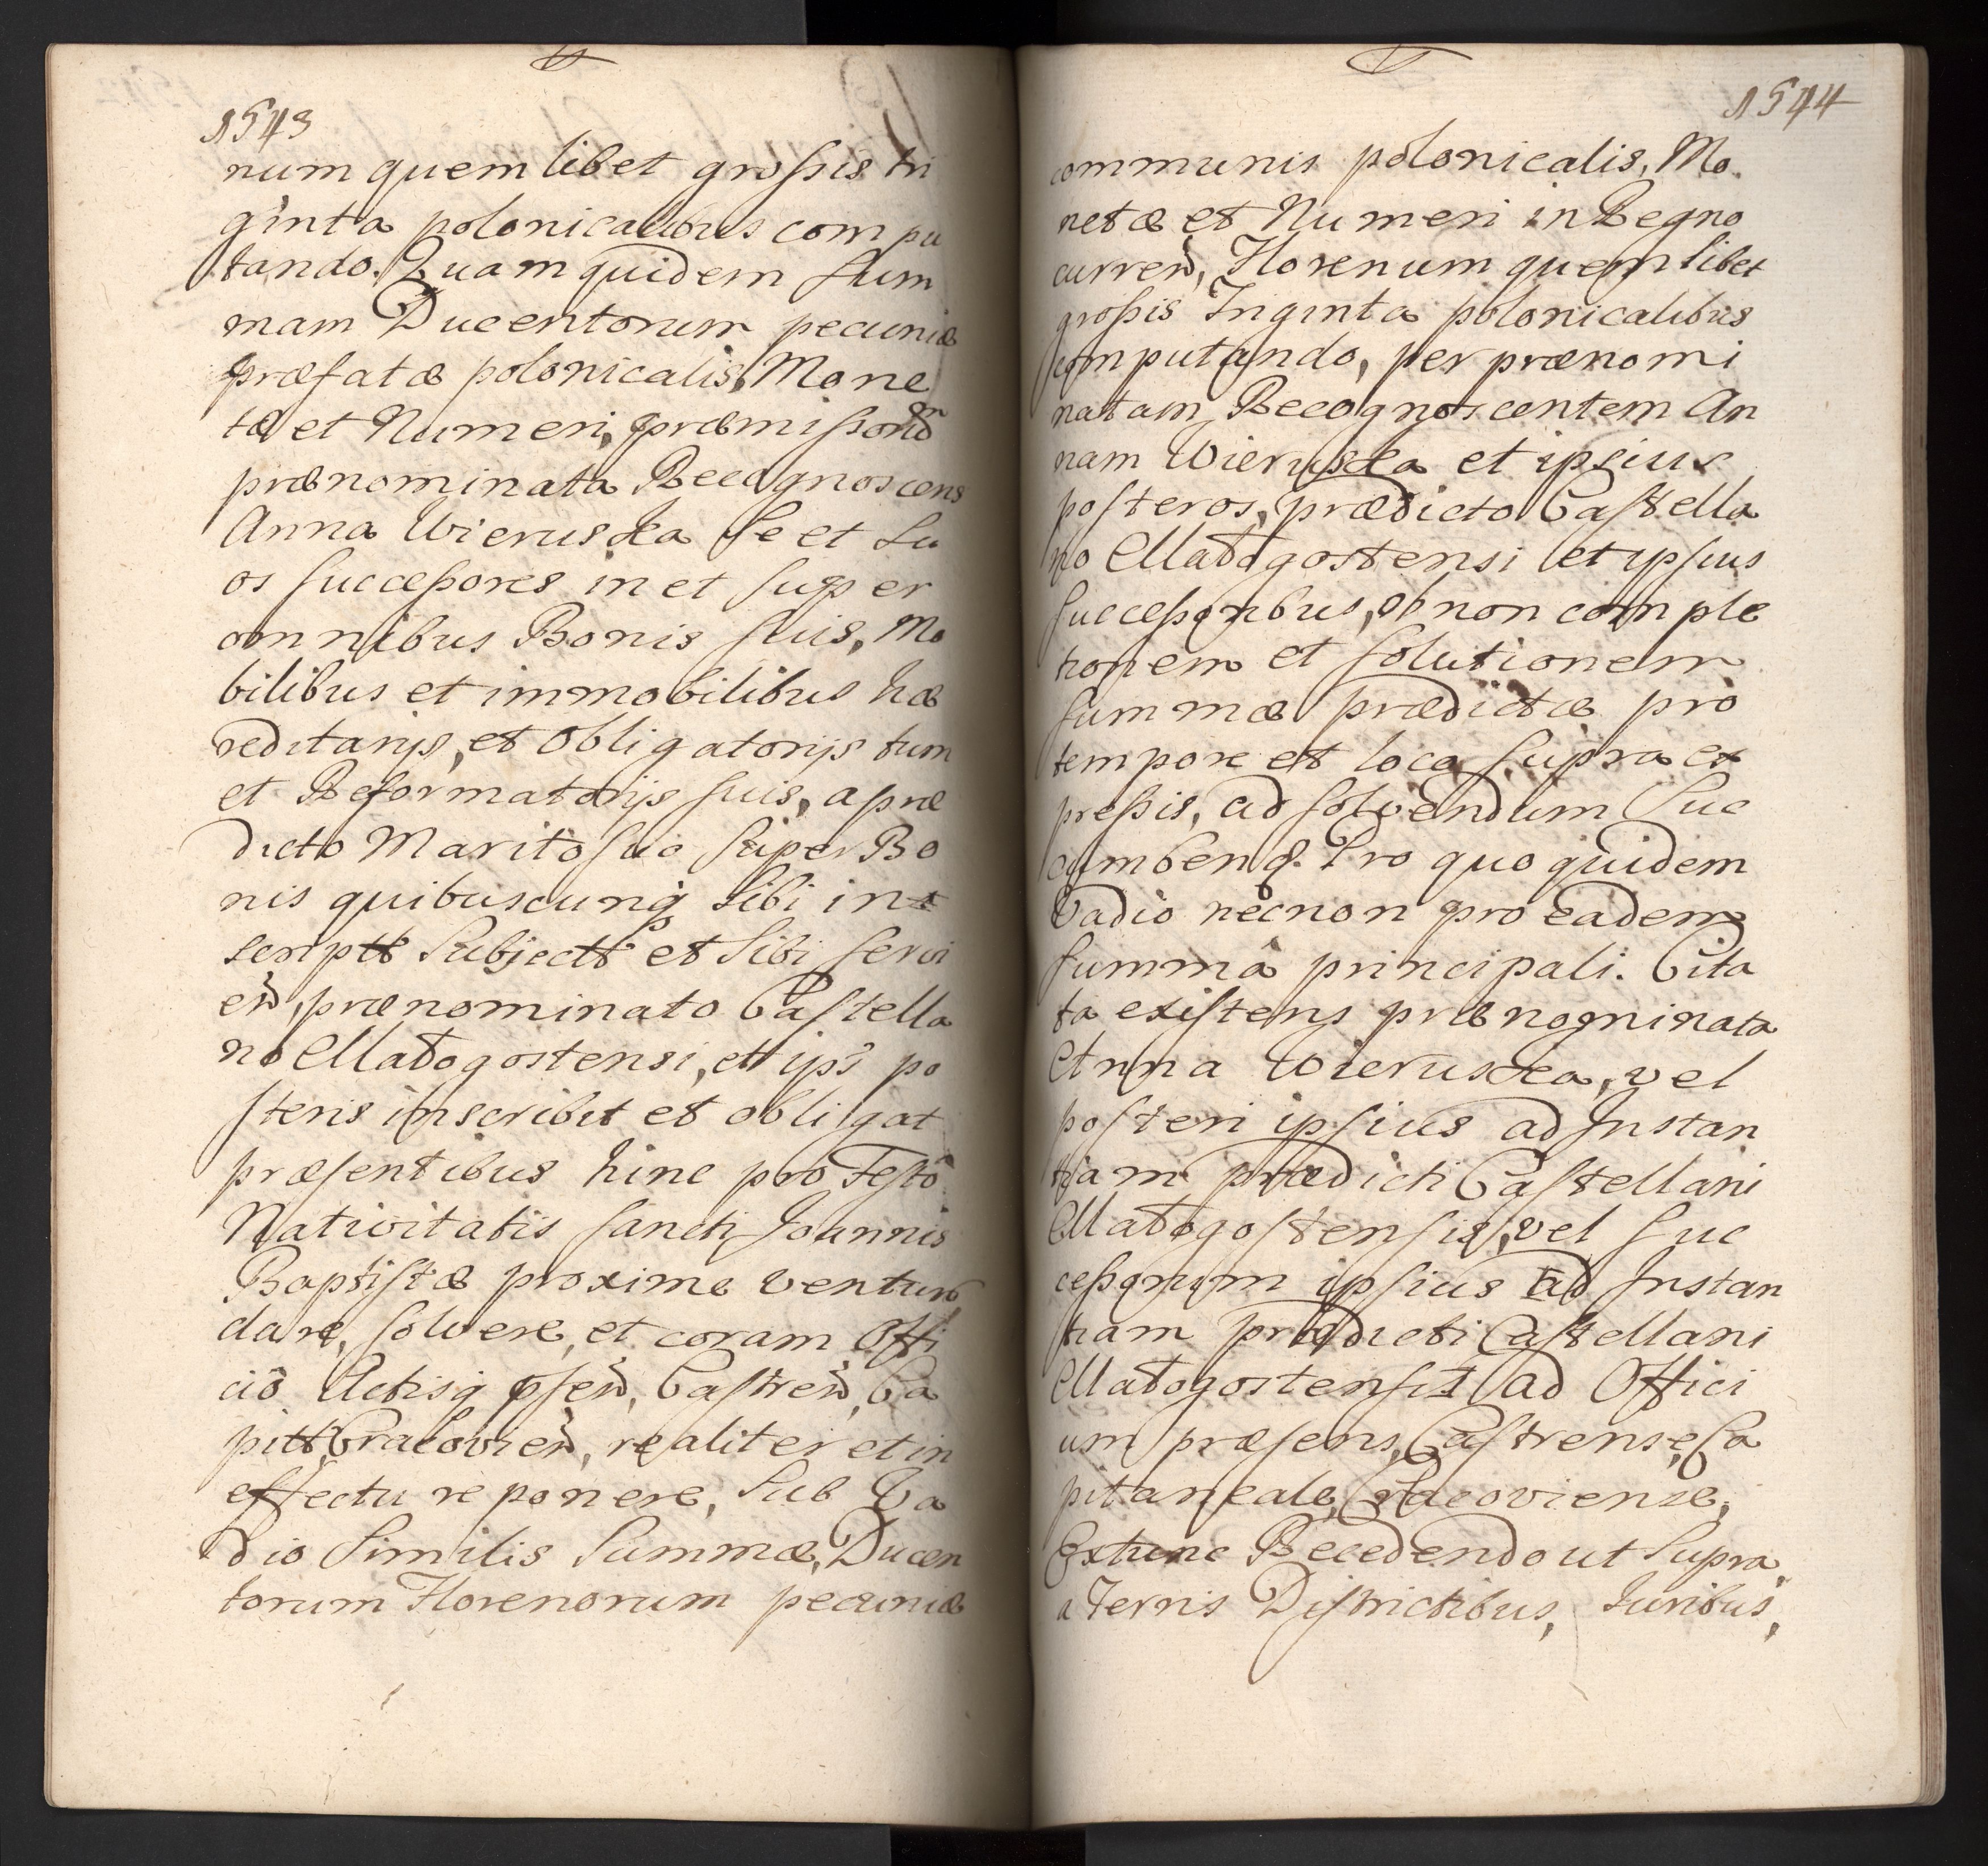 1543
num quem libet groſsis tri
ginta polonicalibus compu
tando. Quam quidem ſum
mam Ducentorum pecuniæ
præfatæ polonicalis, Mone
tæ et Numeri, præmiſsorũ
prænominata Recognoscens
Anna Wieruska ſe et Su
os ſucceſsores in et ſuper
omnibus Bonis ſuis, Mo
bilibus et immobilibus hæ
reditarijs, et obligatorijs tum
et Reformatorijs ſuis, a præ
dicto Marito ſuo ſuper Bo
nis quibuscunq sibi in
script Subject et Sibi ſervi
eñ, prænominato Caſtella
no Małogostensi, et ips po
ſteris inscribit et obligat
præſentibus hinc pro Feſto
Nativitatis ſancti Joannis
Baptiſtæ proxime venturo
dare, ſolvere, et coram Offi
cio Actisq pſeñ, Caſtreñ, Ca
pitt Cracovieñ, realiter et in
effectu reponere, Sub Va
dio Similis Summæ, Ducen
torum Florenorum pecuniæ
1544
communis polonicalis, Mo
netæ et Numeri in Regno
curreñ, Florenum quem libet
groſsis Triginta polonicalibus
computando, per prænomi
natam Recognoscentem An
nam Wieruska et ipsius
poſteros, prædicto Caſtella
no Małogostensi et ipſius
ſucceſsoribus, ob non comple
tionem et ſolutionem
ſummæ prædictæ pro
tempore et loco ſupra ex
preſsis, ad ſolvendum Suc
cumbend. Pro quo quidem
Vadio necnon pro eadem
ſummâ principali. Cita
ta exiſtens prænominata
Anna Wieruska, vel
poſteri ipſius ad Instan
tiam prædicti Caſtellani
Małogoſtenſis, vel ſuc
ceſsorum ipſius ad Instan
tiam prædicti Caſtellani
Małogostenſis ad Offici
um præſens, Caſtrense, Ca
pitaneale, Cracoviense,
Extunc Recedendo ut Supra,
a Terris Diſtrictibus, Iuribus,